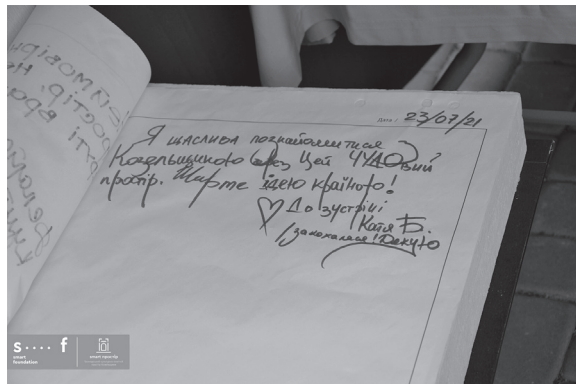 Дата : 23/07/21
Я щаслива познайомитися
Козельщиною через цей ЧУДОвий
простір. Ширте ідею країною!
До зустрічі
Катя Б.
закохалася! Дякую
s···· f
smart
foundation
smart простір